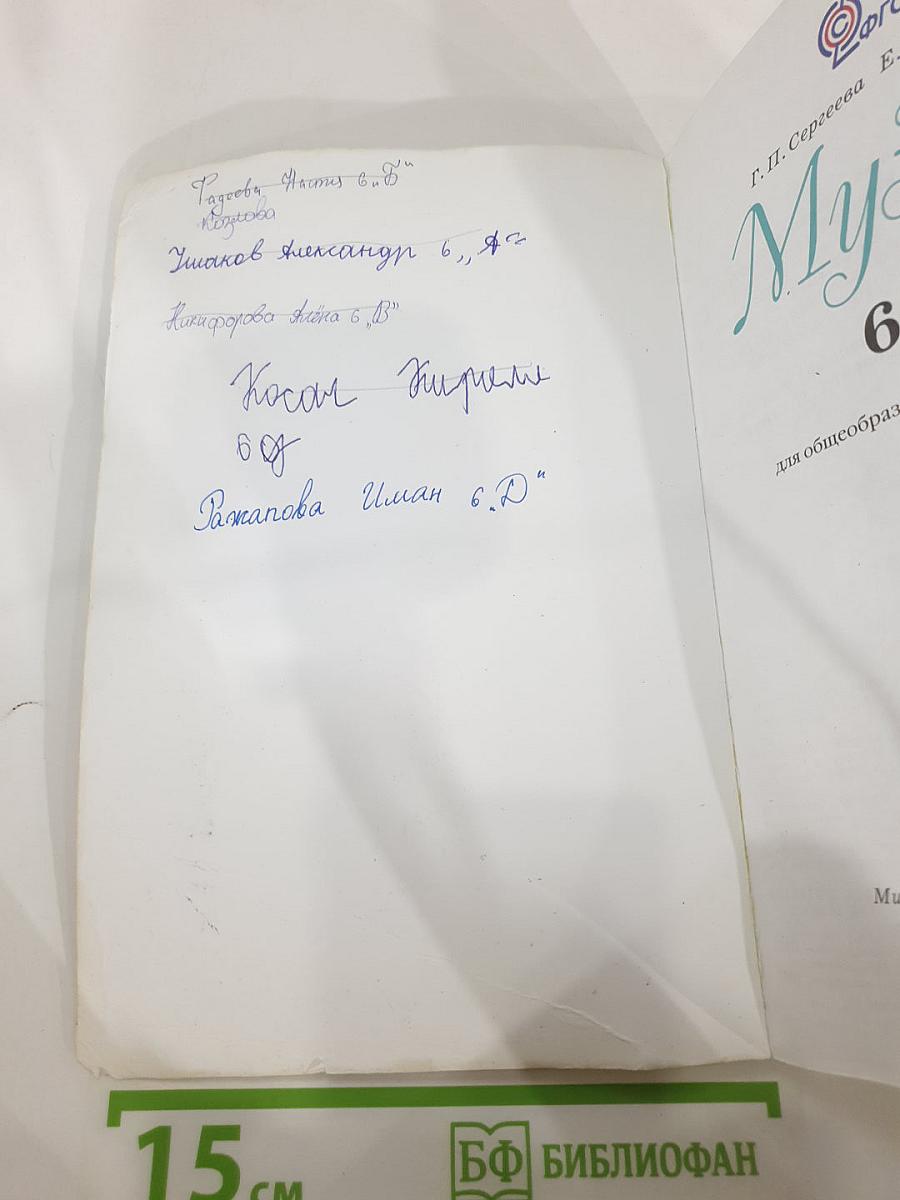 Фадеева Настя 6 „Б"
Козлова
Ушаков Александр 6 „А"
Никифорова Алёна 6 „В"
Косач Кирилл
6
Ражапова Иман 6 „D"
ФГО
Г. П. Сергеева Е.
Му
6
для общеобраз
Ми
15 см
БФ БИБЛИОФАН